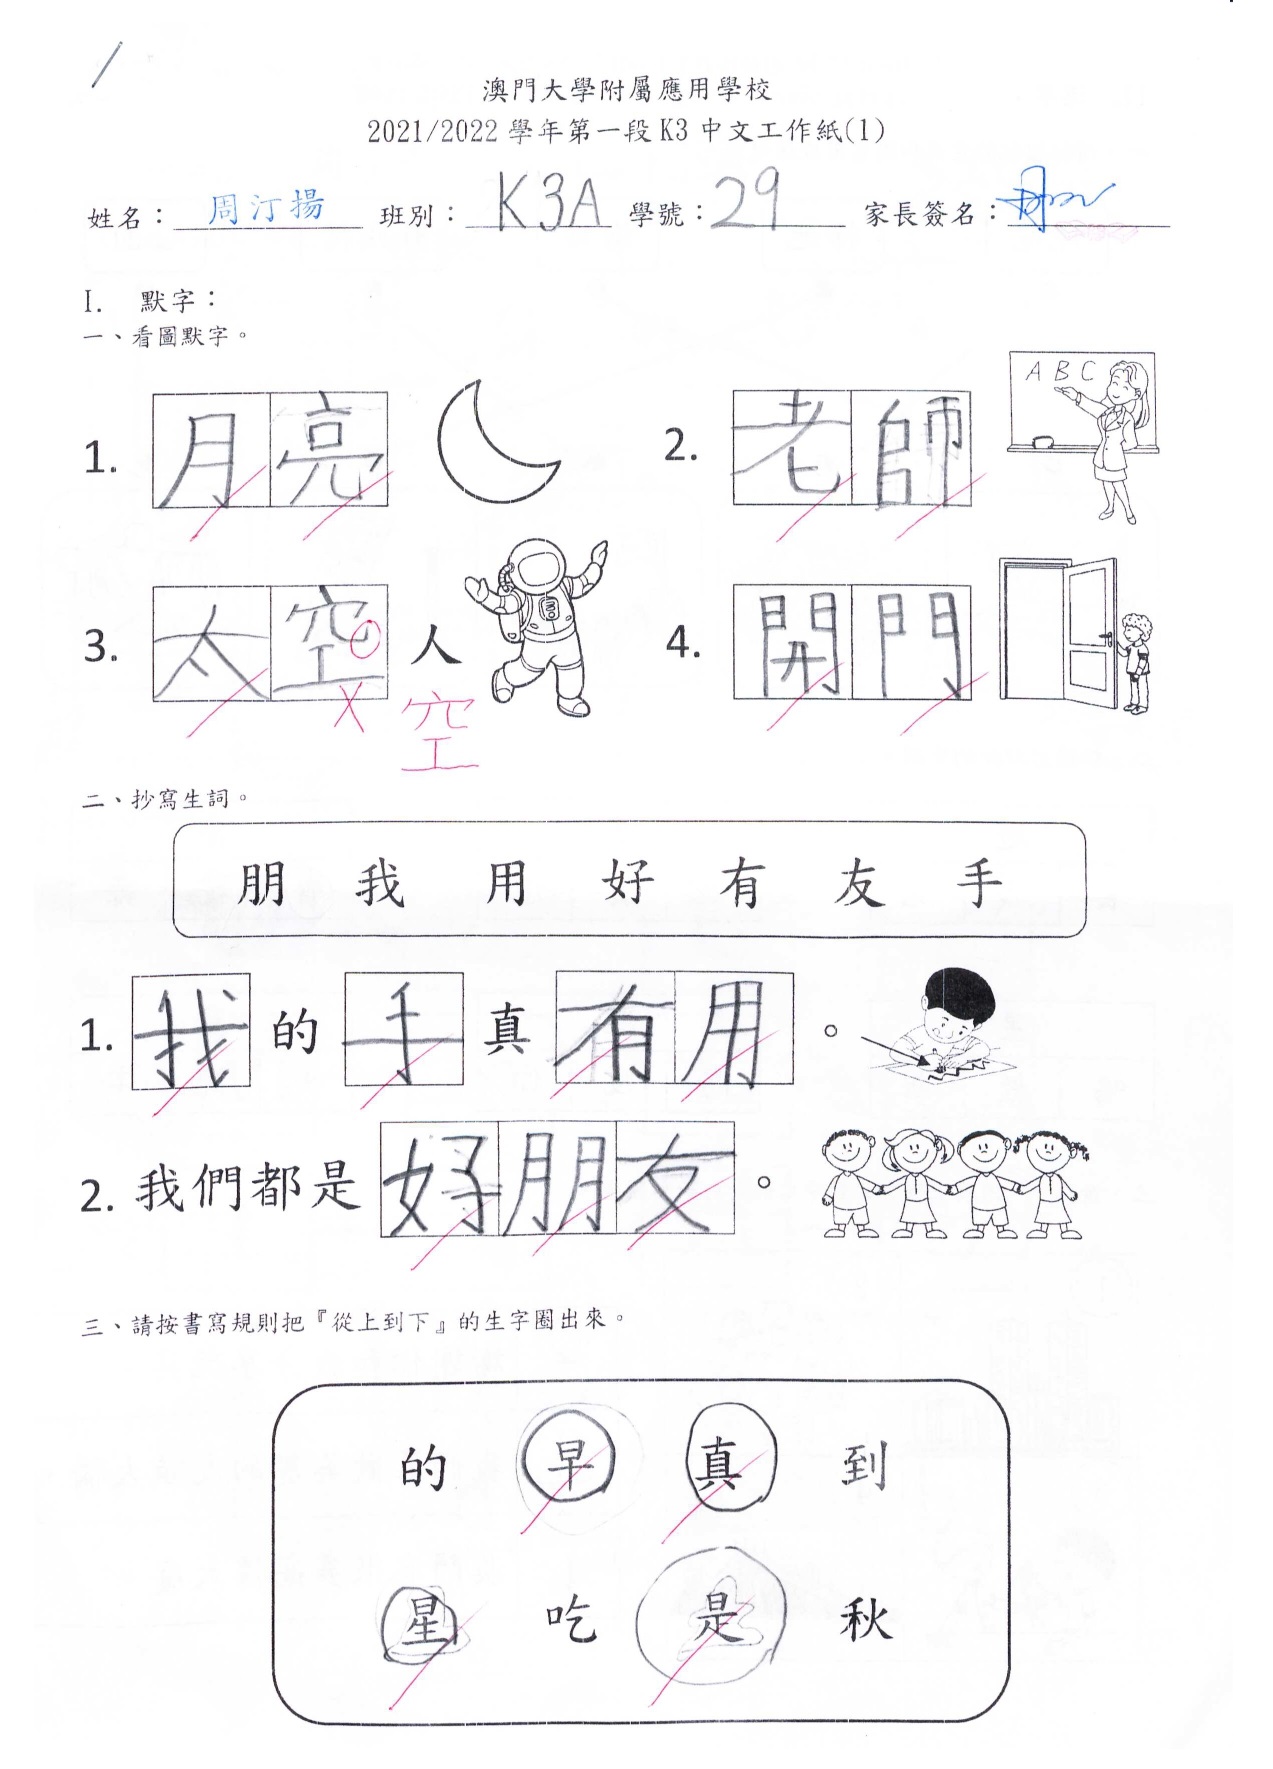 澳門大學附屬應用學校
2021/2022 學年第一段 K3 中文工作紙(1)
姓名：周汀揚 班別：K3A 學號：29 家長簽名：
I. 默字：
一、看圖默字。
1. 月亮
2. 老師
A B C
3. 太空人
空
4. 開門
二、抄寫生詞。
朋 我 用 好 有 友 手
1. 我的手真有用。
2. 我們都是好朋友。
三、請按書寫規則把『從上到下』的生字圈出來。
的 早 真 到
星 吃 是 秋